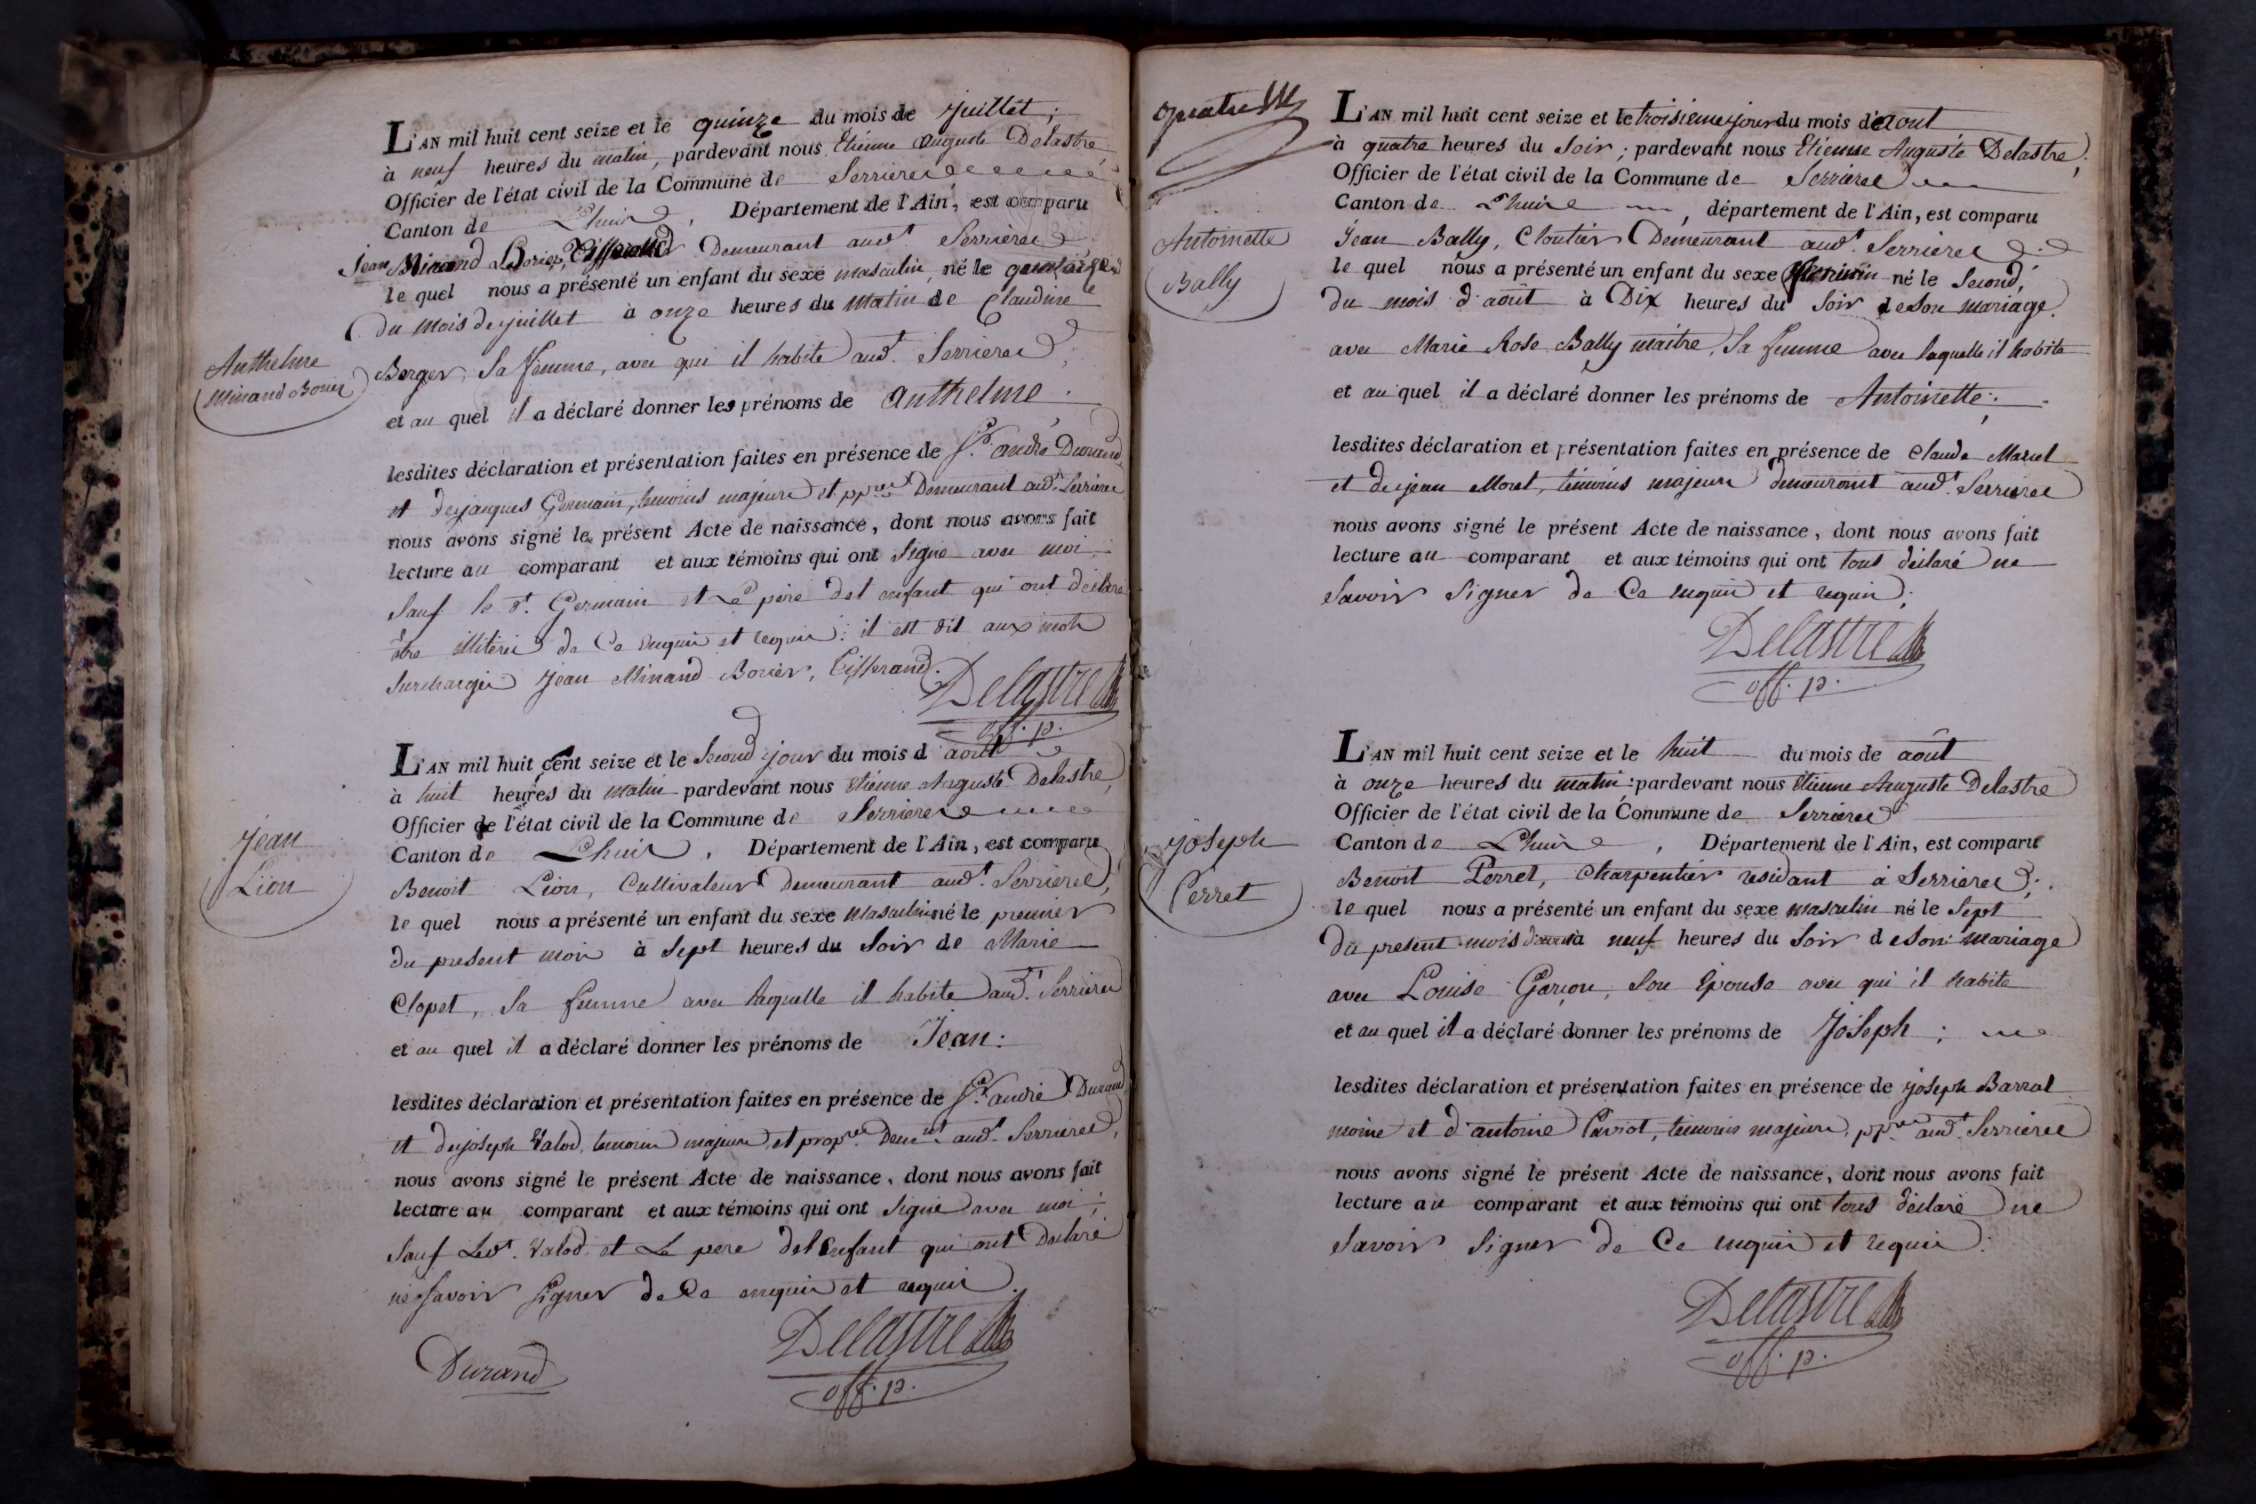 L'AN mil huit cent seize et le quinze du mois de juillet;
à neuf heures du matin, pardevant nous Etienne Auguste Delastre,
Officier de l'état civil de la Commune de Serrieres
Canton de Lhuis, Département de l'Ain, est comparu
Jean Minand Borier, Tisserand Demeurant aud.t Serrieres
le quel nous a présenté un enfant du sexe masculin, né le
du mois de juillet à onze heures du matin de Claudine
Berger, sa femme, avec qui il habite aud.t Serrieres
Anthelme
Minand Borier
et au quel il a déclaré donner les prénoms de anthelme.
lesdites déclaration et présentation faites en présence de S.r andré Durand
et de jacques Germain, temoins majeurs et pp.res Demeurant aud.t Serrieres
nous avons signé le présent Acte de naissance, dont nous avons fait
lecture au comparant et aux témoins qui ont signé avec moi
sauf le d.t Germain et Le père del enfant qui ont déclaré
être illitéré de Ce enquis et requis: il est dit aux mots
surchargés jean Minand Borier, Tisserand.
Delastre
off. p.
L'AN mil huit cent seize et le second jour du mois d aout
à huit heures du matin pardevant nous Etienne Auguste Delastre,
Officier de l'état civil de la Commune de Serrieres
Canton de Lhuis, Département de l'Ain, est comparu
Jean
Lion
Benoit Lion, Cultivateur Demeurant aud.t Serrieres,
le quel nous a présenté un enfant du sexe masculin né le premier
du present mois à sept heures du soir de Marie
Clopet, sa femme avec laquelle il habite aud.t Serrieres
et au quel il a déclaré donner les prénoms de Jean:
lesdites déclaration et présentation faites en présence de S.r andré Durand
et de joseph Valod, temoins majeurs et prop.res Dem.nt aud.t Serrieres,
nous avons signé le présent Acte de naissance, dont nous avons fait
lecture au comparant et aux témoins qui ont signé avec moi;
sauf Led.t Valod et Le pere del Enfant qui ont Déclaré
ne savoir signer de Ce enquis et requis.
Durand
Delastre
off. p.
quatre
L'AN mil huit cent seize et le troisieme jour du mois d'aout
à quatre heures du soir; pardevant nous Etienne Auguste Delastre,
Officier de l'état civil de la Commune de Serrieres
Canton de Lhuis, département de l'Ain, est comparu
Antoinette
Bally
Jean Bally, Cloutier Demeurant aud.t Serrieres
le quel nous a présenté un enfant du sexe feminin né le second,
du mois d'août à Dix heures du soir de son mariage
avec Marie Rose Bally maitre, sa femme avec laquelle il habite
et au quel il a déclaré donner les prénoms de Antoinette;
lesdites déclaration et présentation faites en présence de Claude Marcel
et de jean Moret, témoins majeurs demeurant aud.t Serrieres
nous avons signé le présent Acte de naissance, dont nous avons fait
lecture au comparant et aux témoins qui ont tous déclaré ne
savoir signer de Ce enquis et requis;
Delastre
off. p.
L'AN mil huit cent seize et le huit du mois de août
à onze heures du matin: pardevant nous Etienne Auguste Delastre
Officier de l'état civil de la Commune de Serrieres
Canton de Lhuis, Département de l'Ain, est comparu
joseph
Perret
Benoit Perret, Charpentier residant à Serrieres;
le quel nous a présenté un enfant du sexe masculin né le sept
du present mois à neuf heures du soir de son mariage
avec Louise Garçon, son Epouse avec qui il habite
et au quel il a déclaré donner les prénoms de Joseph;
lesdites déclaration et présentation faites en présence de joseph Barral
moine et d'antoine Paviot, témoins majeurs, pp.res aud.t Serrieres
nous avons signé le présent Acte de naissance, dont nous avons fait
lecture au comparant et aux témoins qui ont tous déclaré ne
savoir signer de Ce enquis et requis.
Delastre
off. p.